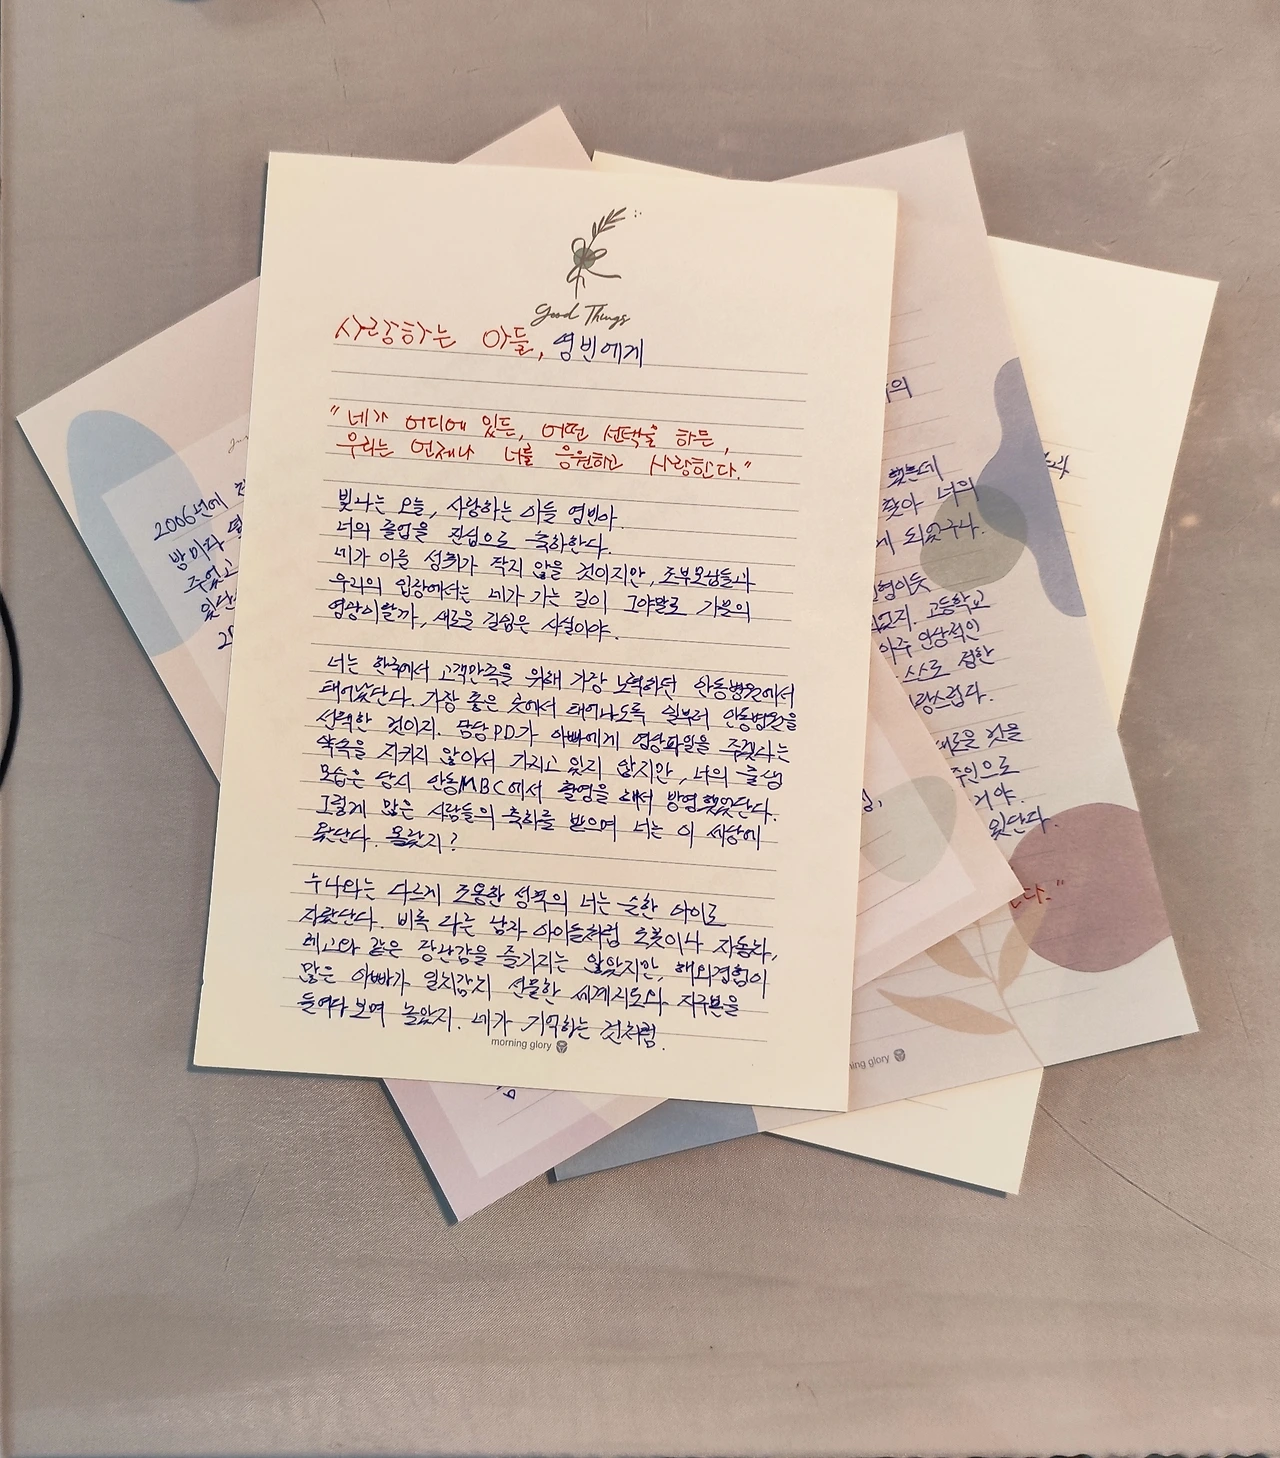 Good Things
사랑하는 아들, 영빈에게
"네가 어디에 있든, 어떤 선택을 하든,
우리는 언제나 너를 응원하고 사랑한다."
빛나는 오늘, 사랑하는 아들 영빈아.
너의 졸업을 진심으로 축하한다.
네가 이룬 성취가 작지 않을 것이지만, 조부모님들과
우리의 입장에서는 네가 가는 길이 그야말로 가문의
영광이랄까, 새로운 길임은 사실이야.
너는 한국에서 고객만족을 위해 가장 노력하던 안동병원에서
태어났단다. 가장 좋은 곳에서 태어나도록 일부러 안동병원을
선택한 것이지. 담당PD가 아빠에게 영상파일을 주겠다는
약속을 지키지 않아서 가지고 있지 않지만, 너의 출생
모습은 당시 안동MBC에서 촬영을 해서 방영했었단다.
그렇게 많은 사람들의 축하를 받으며 너는 이 세상에
왔단다. 몰랐지?
누나와는 다르게 조용한 성품의 너는 순한 아이로
자랐단다. 비록 다른 남자 아이들처럼 로봇이나 자동차,
레고와 같은 장난감을 즐기지는 않았지만, 해외경험이
많은 아빠가 일찌감치 선물한 세계지도와 지구본을
들여다보며 놀았지. 네가 기억하는 것처럼.
morning glory
2006년에
밤마다
주었고
했는데
찾아 너의
게 되었구나.
없지. 고등학교
아주 인상적인
스스로 접한
랑스럽다.
새로운 것을
주인으로
거야.
있단다.
다."
ning glory